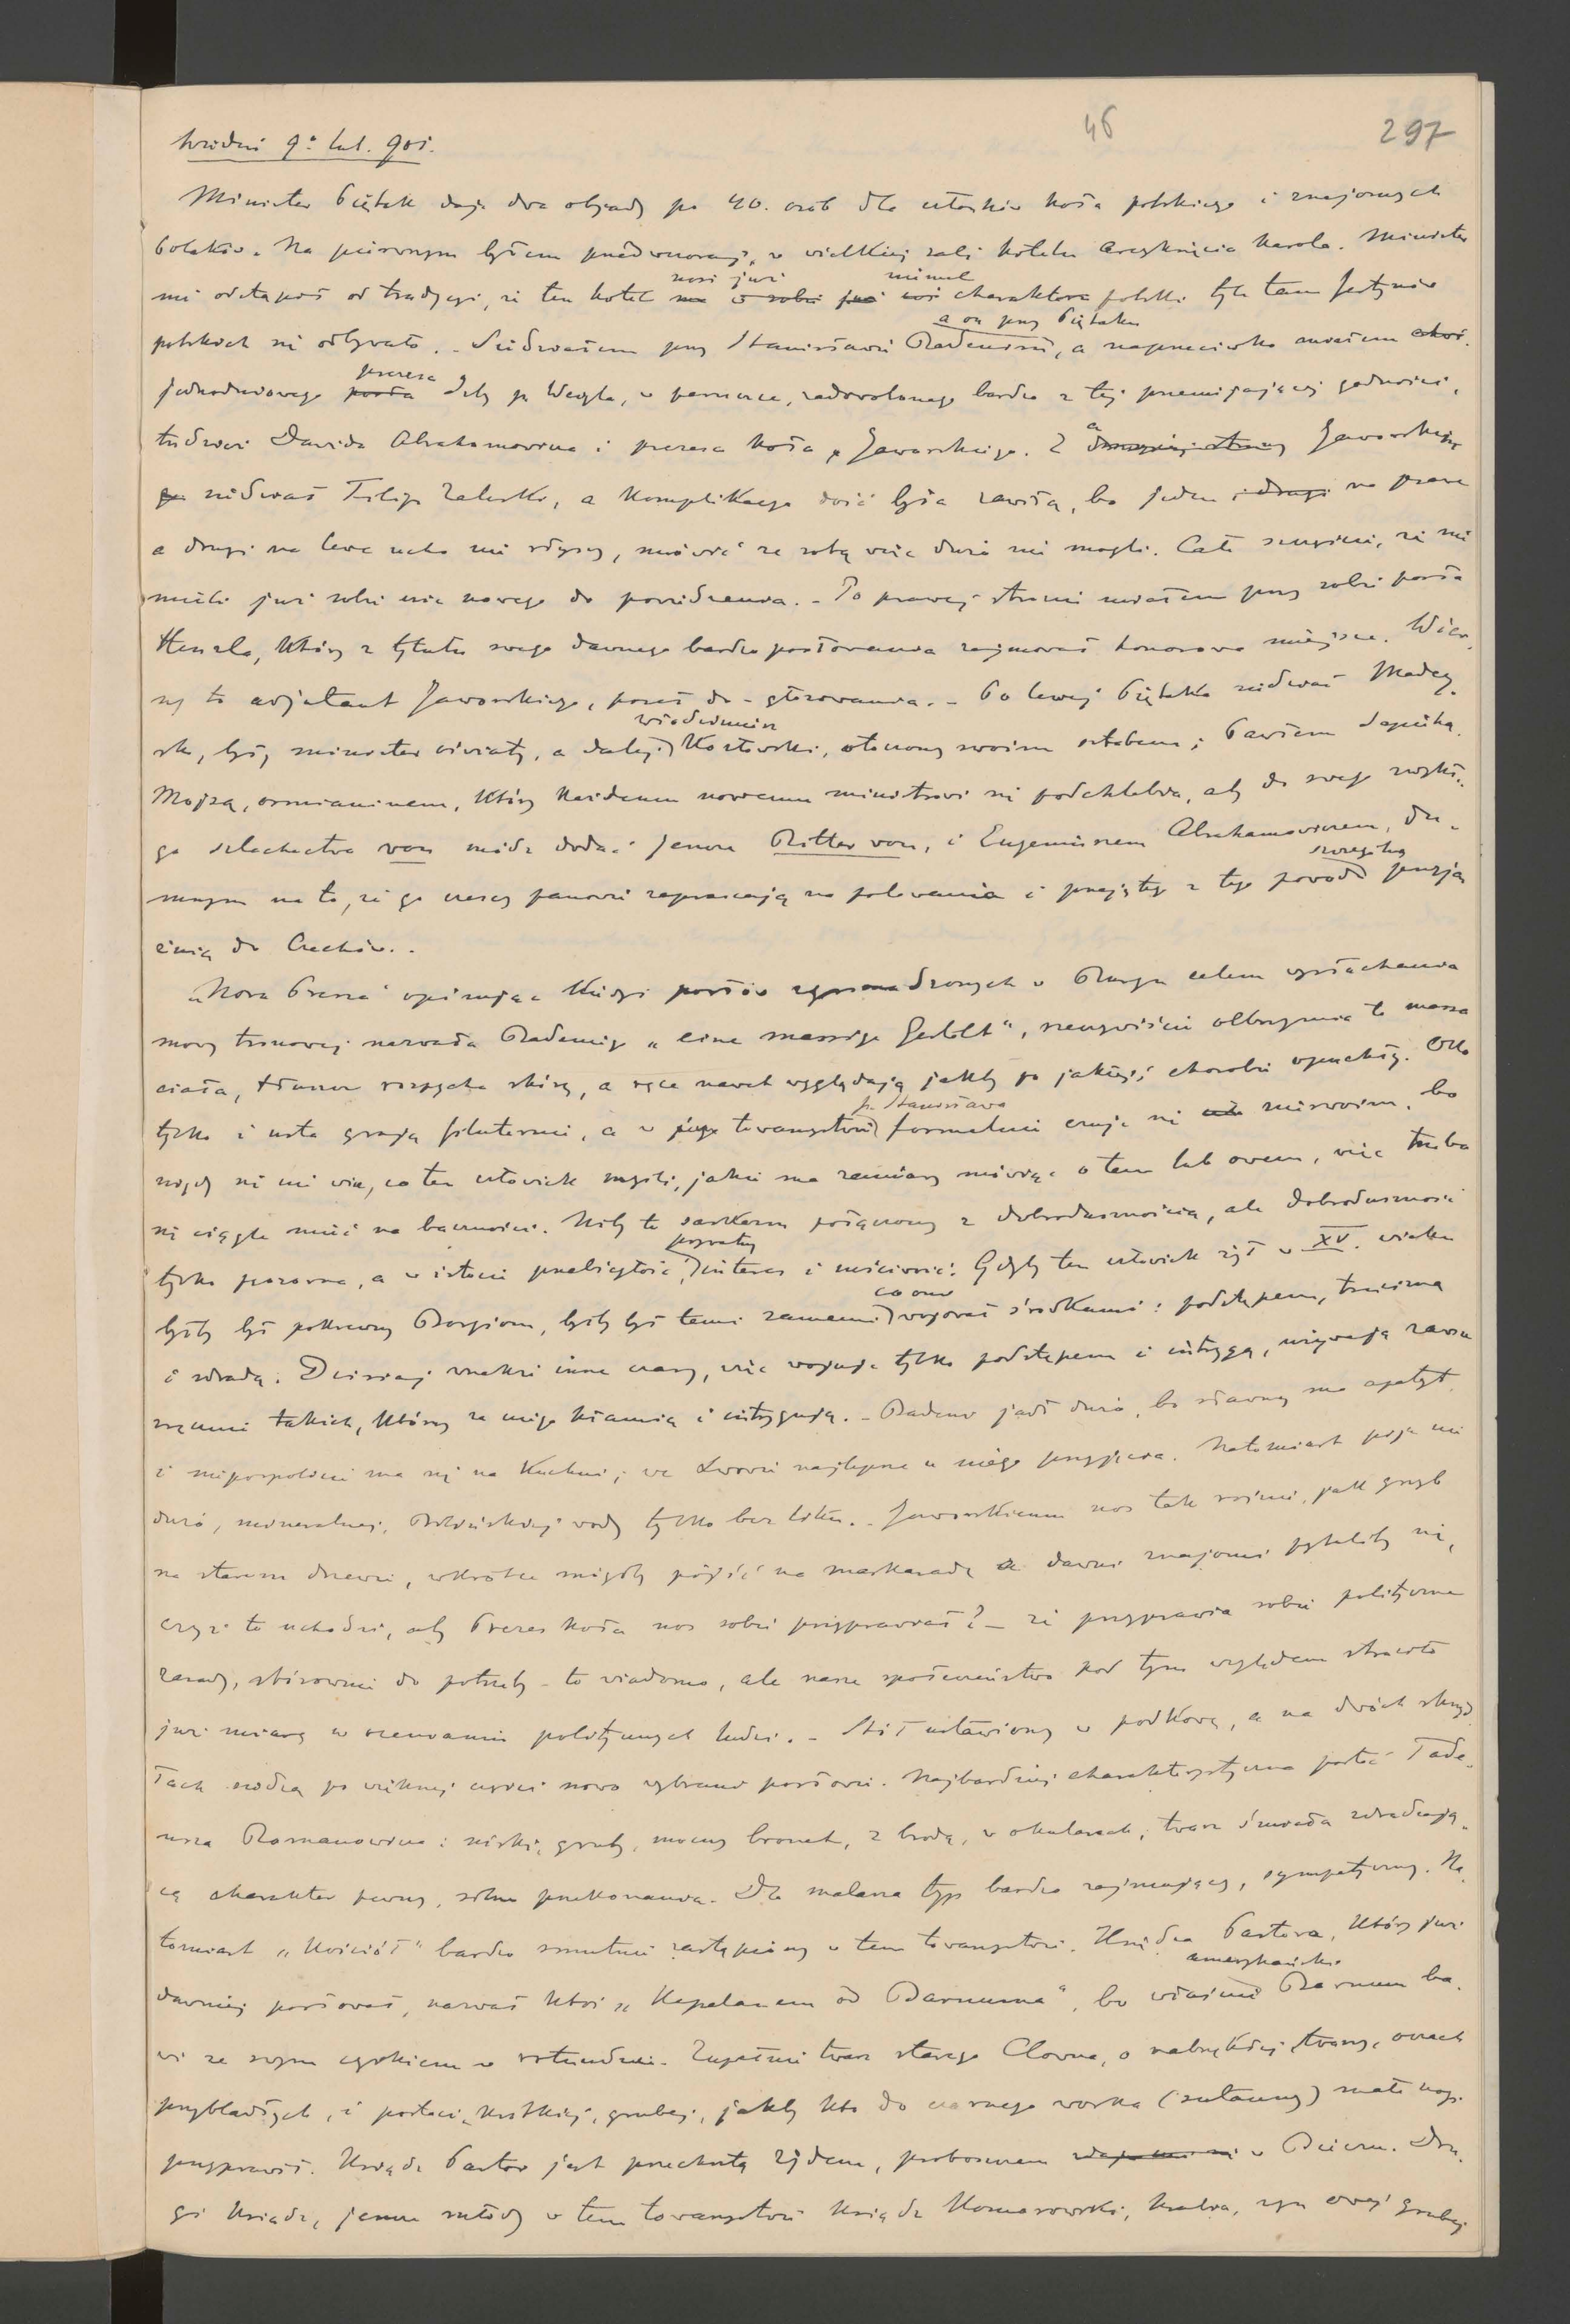 46 297
Wiedeń 9º lut. 901.
Minister Piętak daje dwa objady po 40. osób dla członków koła polskiego i znajomych
Polaków. Na pierwszym byłem przedwczoraj, w wielkiej sali hotelu Arcyksięcia Karola. Minister
nie odstąpił od tradycyi, że ten hotel nosi już niemal charakter polski tyle tam festynów
polskich się odbywało. - Siedziałem przy Stanisławie Badenim, a on przy Piętaku, a naprzeciwko miałem
jednodniowego prezesa Izby p. Weigla, w peruce, zadowolonego bardzo z tej przemijającej godności,
tudzież Dawida Abrahamowicza i prezesa koła p. Jaworskiego. Jaworskiego
siedział Filip Zaleski, a komplikacya dość była zawiła, bo jeden na prawe
a drugi na lewe ucho nie słyszy, mówić ze sobą więc dużo nie mogli. Całe szczęście, że nie
mieli już sobie nic nowego do powiedzenia. - Po prawej stronie miałem przy sobie posła
Henzla, który z tytułu swego dawnego bardzo posłowania zajmował honorowe miejsce. Wier-
ny to adjutant Jaworskiego, poseł do - głosowania. - Po lewej Piętaka siedział Madey-
ski, były minister oświaty, a dalej Włodzimierz Kozłowski, otoczony swoim sztabem; Pawłem Sapiehą
Mojsą, ormianinem, który każdemu nowemu ministrowi się podchlebia, aby do swego zwykłe-
go szlachectwa von módz dodać jeszcze Ritter von, i Eugeniuszem Abrahamowiczem, du-
mnym na to, że go czescy panowie zapraszają na polowania i przejęty z tego powodu szczególną przyja-
źnią do Czechów..
„Nowa Pressa" opisując kiedyś posłów zgromadzonych w Burgu celem wysłuchania
mowy tronowej nazwała Badeniego „eine massige Gestalt", rzeczywiście olbrzymia to massa
ciała, tłuszcz rozpycha skórę, a ręce nawet wyglądają jakby po jakiejś chorobie opuchły. Oko
tylko i usta grają filuternie, a w towarzystwie p. Stanisława formalnie czuję się nieswoim, bo
nigdy się nie wie, co ten człowiek myśli, jakie ma zamiary mówiąc o tem lub owem, więc trzeba
się ciągle mieć na baczności. Niby to sarkazm połączony z dobrodusznością, ale dobroduszność
tylko pozorna, a w istocie przebiegłość, prywatny interes i mściwość. Gdyby ten człowiek żył w XV. wieku
byłby był pokrewny Borgiom, byłby był temi samemi co oni wojował środkami: podstępem, trucizną
i zdradą. Dzisiaj wszakże inne czasy, więc wojuje tylko podstępem i intrygą, używając zawsze
zręcznie takich, którzy za niego kłamią i intrygują. - Badeni jadł dużo, bo sławny ma apetyt
i niepospolicie ma się na kuchni; we Lwowie najlepsze u niego przyjęcia. Natomiast pije nie
dużo, mineralnej, Bilińskiej wody tylko bez liku. - Jaworskiemu nos tak rośnie, jak grzyb
na starem drzewie, wkrótce mógłby pójść na maskaradę a dawni znajomi pytaliby się,
czyż to uchodzi, aby Prezes koła nos sobie przyprawiał? - że przyprawia sobie polityczne
zasady, stósownie do potrzeby - to wiadomo, ale nasze społeczeństwo pod tym względem straciło
już miarę w ocenianiu politycznych ludzi. - Stół ustawiony w podkowę, a na dwóch skrzy-
łach siedzą po większej części nowo wybrani posłowie. Najbardziej charakterystyczna postać Tade-
usza Romanowicza: niski, gruby, mocny brunet, z brodą, w okularach, twarz śniada zdradzają-
cą charakter pewny, silne przekonania. Dla malarza typ bardzo zajmujący, sympatyczny. Na-
tomiast „Kościół" bardzo smutnie zastąpiony w tem towarzystwie. Księdza Pastora, który już
dawniej posłował, nazwał ktoś „Kapelanem od Barnuma", bo właśnie amerykański Barnum ba-
wi ze swym cyrkiem w rotundzie. Zupełnie twarz starego Clowna, o nabrzękłej twarzy, oczach
przybladłych, i postaci krótkiej, grubej, jakby kto do czarnego worka (sutanny) małe nogi
przyprawił. Ksiądz Pastor jest przechrztą żydem, proboszczem w Bieczu. Dru-
gi ksiądz, jeszcze młody w tem towarzystwie ksiądz Komorowski, hrabia, syn owej grubej